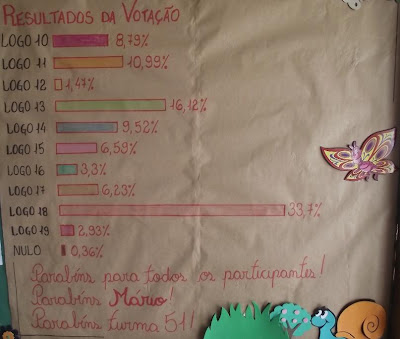 RESULTADOS DA VOTAÇÃO
LOGO 10 8,79%
LOGO 11 10,99%
LOGO 12 1,47%
LOGO 13 16,12%
LOGO 14 9,52%
LOGO 15 6,59%
LOGO 16 3,3%
LOGO 17 6,23%
LOGO 18 33,7%
LOGO 19 2,93%
NULO 0,36%
Parabéns para todos os participantes!
Parabéns Mário!
Parabéns turma 51!